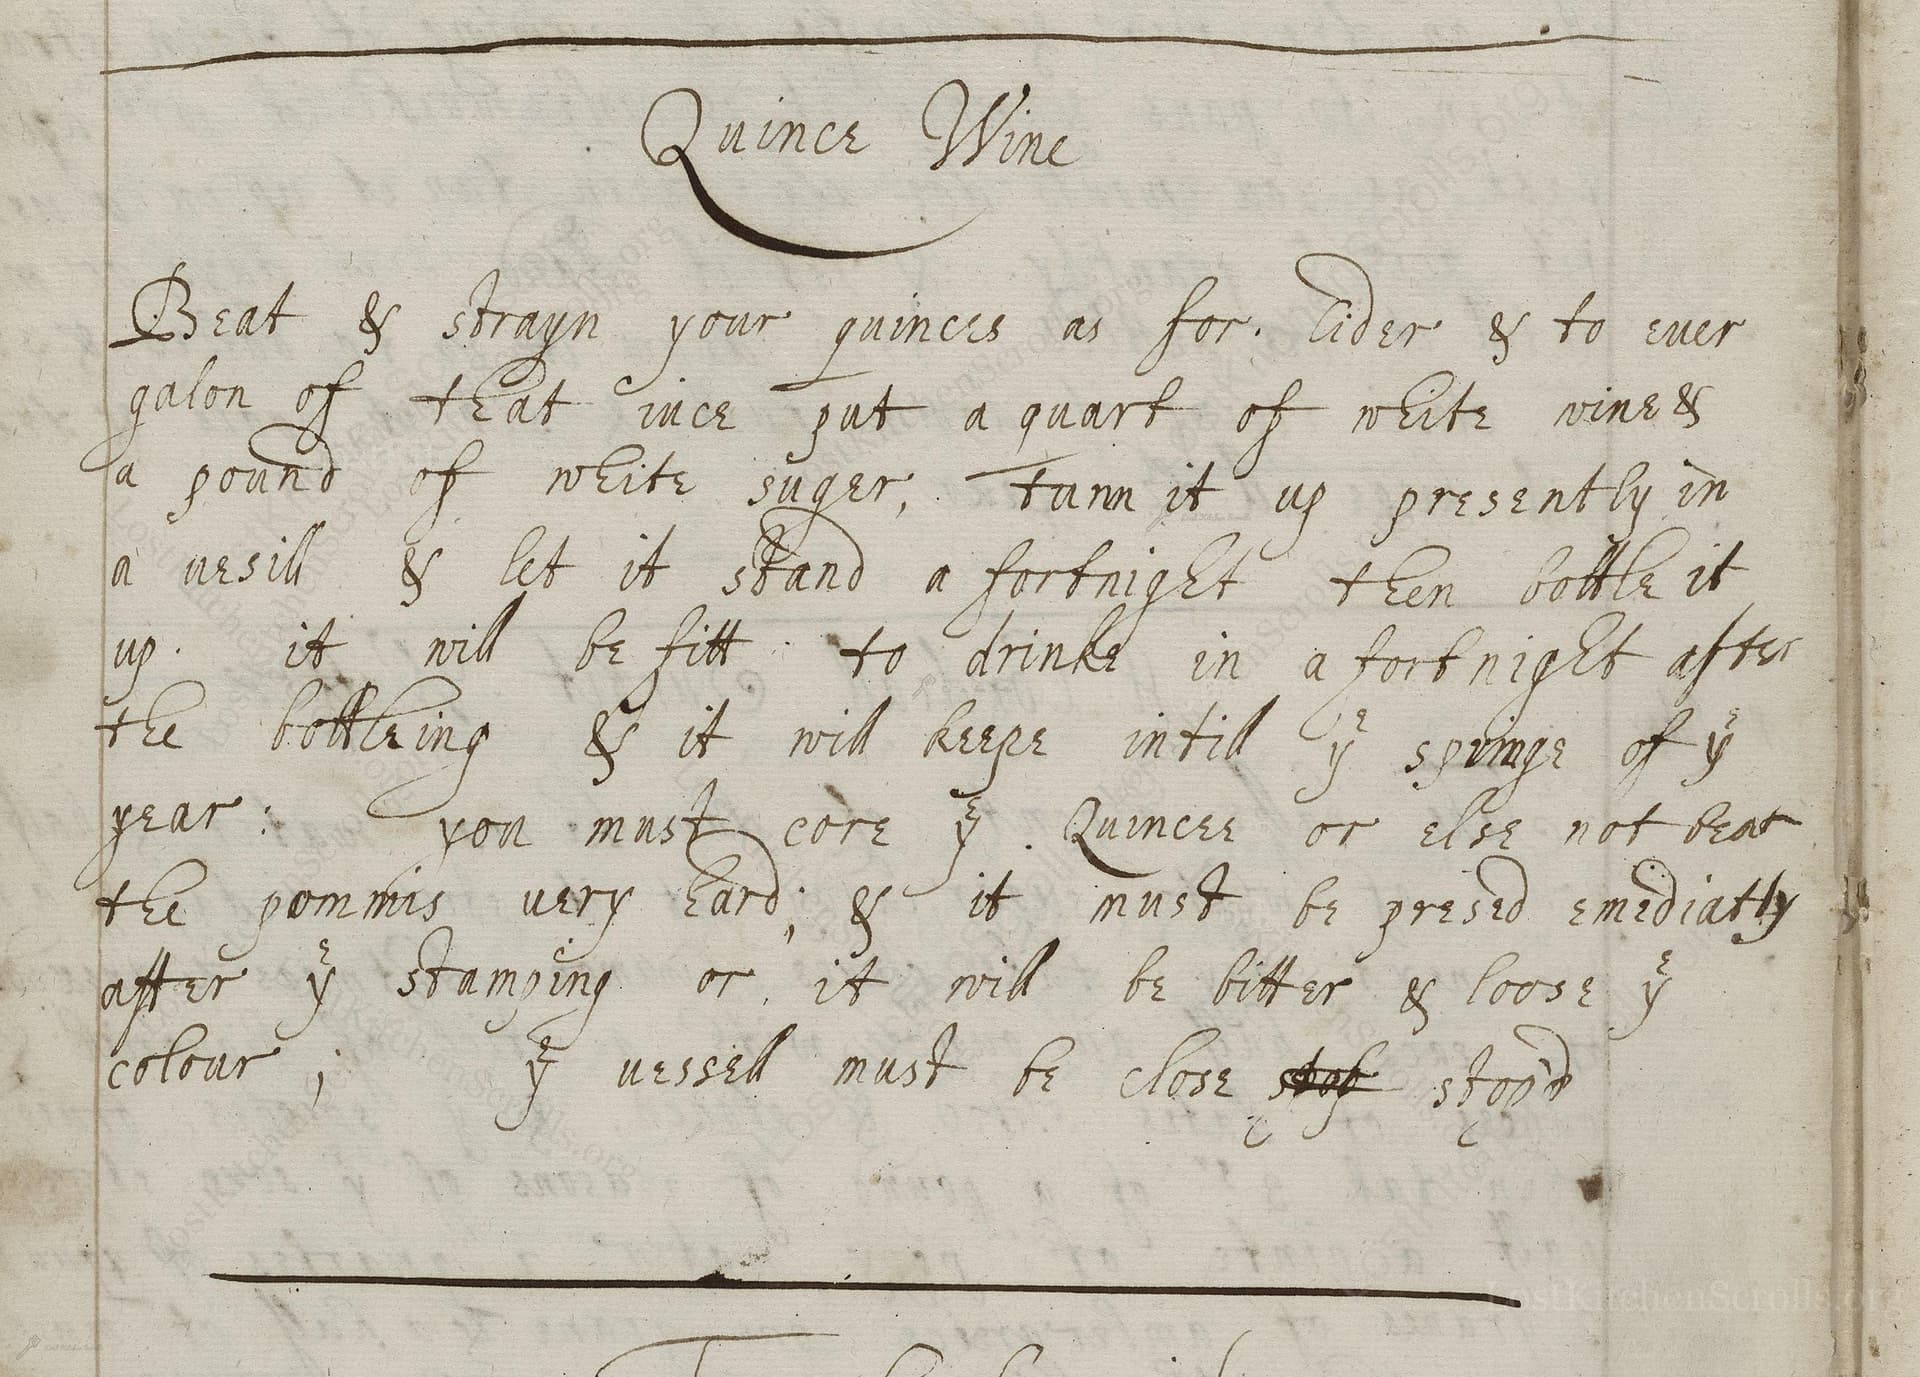 Quince Wine
Beat & strayn your quinces as for. Cider & to euer
galon of that iuce put a quart of white wine &
a pound of white suger, Tunn it up presently in
a uesill & let it stand a fortnight then bottle it
up. it will be fitt to drinke in a fortnight after
the bottleing & it will keepe intill yͤ springe of yͤ
year: you must core yͤ Quinces or else not beat
the pommis uery hard; & it must be presed emediatly
after yͤ stamping or it will be bitter & loose yͤ
colour; yͤ uessell must be close stop'd
LostKitchenScrolls.org